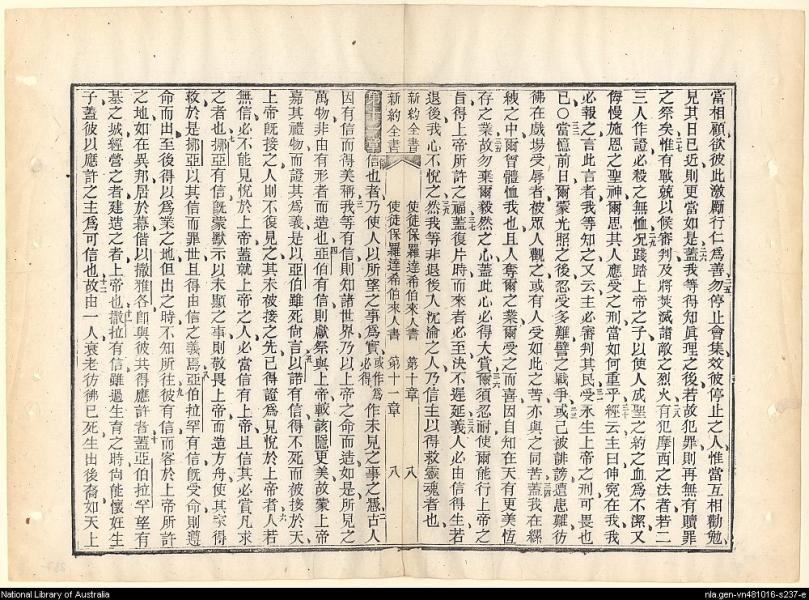 當相顧欲彼此激厲行仁爲善勿停止會集效彼停止之人惟當互相勸勉
見其日已近則更當如是蓋我等得知眞理之後若故犯罪則再無有贖罪
之祭矣惟有戰兢以候審判及將焚滅諸敵之烈火有犯摩西之法者若二
三人作證必殺之無恤況踐踏上帝之子以使人成聖之約之血爲不潔又
侮慢施恩之聖神爾思其人應受之刑當如何重乎經云主曰伸寃在我我
必報之言此言者我等知之又云主必審判其民受永生上帝之刑可畏也
已〇當憶前日爾蒙光照之後忍受多難譬之戰爭或己被誹謗遭患難彷
彿在戲場受辱者被眾人觀之或有人受如此之苦亦與之同苦蓋我在縲
絏之中爾曾體恤我也且人奪爾之業爾受之而喜因自知在天有更美恆
存之業故勿棄爾毅然之心蓋此心必得大賞爾須忍耐使爾能行上帝之
旨得上帝所許之福蓋復片時而來者必至決不遲延義人必由信得生若
退後我心不悅之然我等非退後入沉淪之人乃信主以得救靈魂者也
新約全書 使徒保羅達希伯來人書 第十章 八
新約全書 使徒保羅達希伯來人書 第十一章 八
第十一章 信也者乃使人以所望之事爲實或作爲必得作未見之事之憑古人
因有信而得美稱我等有信則知諸世界乃以上帝之命而造如是所見之
萬物非由有形者而造也亞伯有信則獻祭與上帝較該隱更美故蒙上帝
嘉其禮物而證其爲義是以亞伯雖死尙言以諾有信得不死而被接於天
上帝旣接之人則不復見之其未被接之先已得證爲見悅於上帝者人若
無信必不能見悅於上帝蓋就上帝之人必當信有上帝且信其必賞凡求
之者也挪亞有信旣蒙默示以未顯之事則敬畏上帝而造方舟使其家得
救於是挪亞以其信而罪世且得由信之義焉亞伯拉罕有信旣受命則遵
命而出至後得以爲業之地但出之時不知所往彼有信而客於上帝所許
之地如在異邦居於幕偕以撒雅各卽與彼共得應許者蓋亞伯拉罕望有
基之城經營之者建造之者上帝也撒拉有信雖過生育之時尙能懷妊生
子蓋彼以應許之主爲可信也故由一人衰老彷彿已死生出後裔如天上
National Library of Australia
nla.gen-vn481016-s237-e